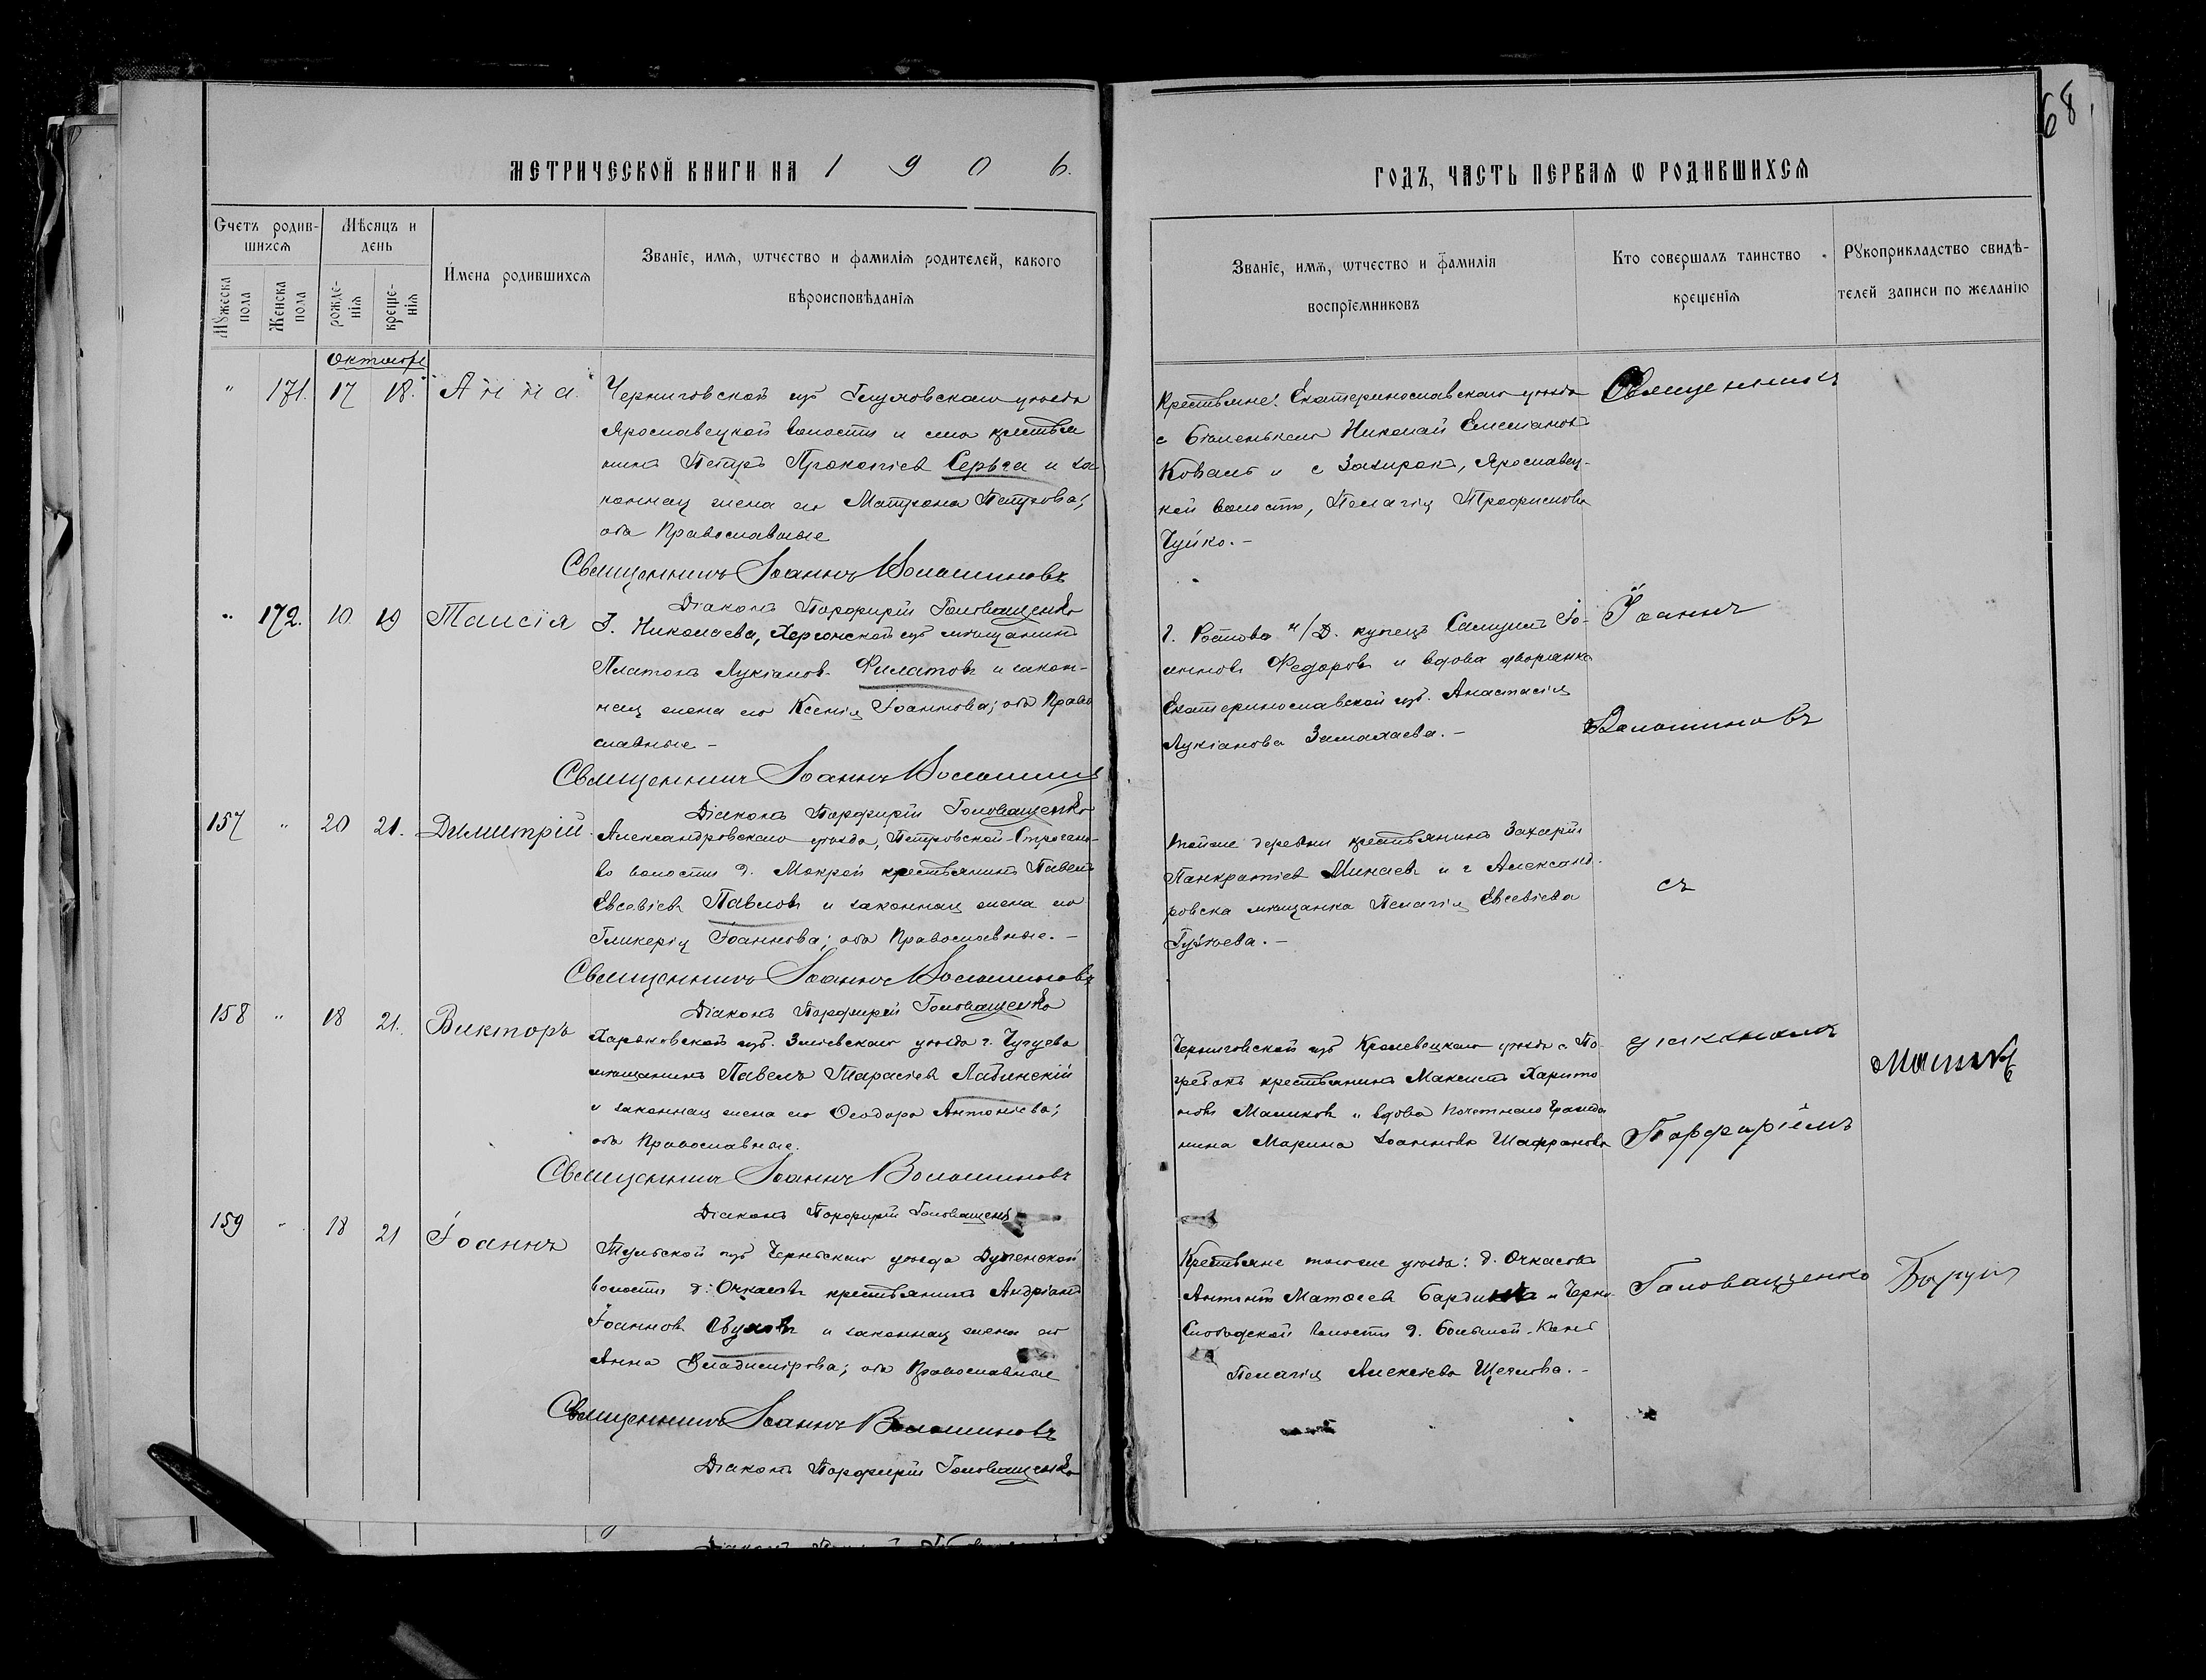 68
МЕТРИЧЕСКОЙ КНИГИ НА 1906.
ГОДЪ, ЧАСТЬ ПЕРВАЯ Ѡ РОДИВШИХСЯ
Счетъ родив-
шихся
Мѣсяцъ и
день
Мужеска
пола
Женска
пола
рожде-
нія
креще-
нія
Имена родившихся
Званіе, имя, ѡтчество и фамилія родителей, какого
вѣроисповѣданія
Званіе, имя, ѡтчество и фамилія
воспріемниковъ
Кто совершалъ таинство
крещенія
Рукоприкладство свидѣ-
телей записи по желанію
Октябрь
" 171. 17 18. Анна.
Черниговской губ Глуховскаго уѣзда
Ярославецкой волости и села крестья
нинъ Петръ Прокопіевъ Серьга и за
конная жена его Матрона Петрова;
оба Православные
Священникъ Іоаннъ Волошиновъ
Діаконъ Порфирій Головащенко
Крестьяне: Екатеринославскаго уѣзда
с Николай Емельяновъ
Коваль и с Захирокъ, Ярославец-
кой волости, Пелагія Трофимова
Чуйко. –
" 172. 10 19 Таисія
Г. Николаева, Херсонской губ мѣщанинъ
Платонъ Лукіановъ Филатовъ и закон-
ная жена его Ксенія Іоаннова; оба Право
славные –
Священникъ Іоаннъ Волошиновъ
Діаконъ Порфирій Головащенко
г. Ростова н/Д. купецъ Іо-
анновъ Федоровъ и вдова дворянка
Екатеринославской губ. Анастасія
Лукіанова Замахаева. –
157 " 20 21. Димитрій.
Александровскаго уѣзда, Петровской-
во волости д. Мокрой крестьянинъ Павелъ
Евсевіевъ Павловъ и законная жена его
Гликерія Іоаннова; оба Православные. –
Священникъ Іоаннъ Волошиновъ
Діаконъ Порфирій Головащенко
Тойже деревни крестьянинъ Захарій
Панкратіевъ Минаевъ и г Александ-
ровска мѣщанка Пелагія Евсевіева
158 " 18 21. Викторъ
Харьковской губ. Зміевскаго уѣзда г. Чугуева
мѣщанинъ Павелъ Тарасіевъ Лабинскій
и законная жена его Ѳеодора Антоніева;
оба Православные.
Священникъ Іоаннъ Волошиновъ
Діаконъ Порфирій Головащенко
Черниговской губ Кролевецкаго уѣзда с По-
гребокъ крестьянинъ Максимъ Харито
новъ Маликовъ и вдова почетнаго гражда
нина Марина Іоаннова Шафранова
159 " 18 21 Іоаннъ
Тульской губ Чернскаго уѣзда
волости д. Очкасовъ крестьянинъ Андріанъ
Іоанновъ Обуховъ и законная жена его
Анна Владимірова; оба Православные
Священникъ Іоаннъ Волошиновъ
Діаконъ Порфирій Головащенко
Крестьяне того же уѣзда: д. Очкасова
Антонъ Матѳеевъ и Черно
Слободской волости д. Большой-
Пелагія Алексіева Щеглова. –
Священникъ
Іоаннъ
Волошиновъ
съ
діакономъ
Порфиріемъ
Головащенко